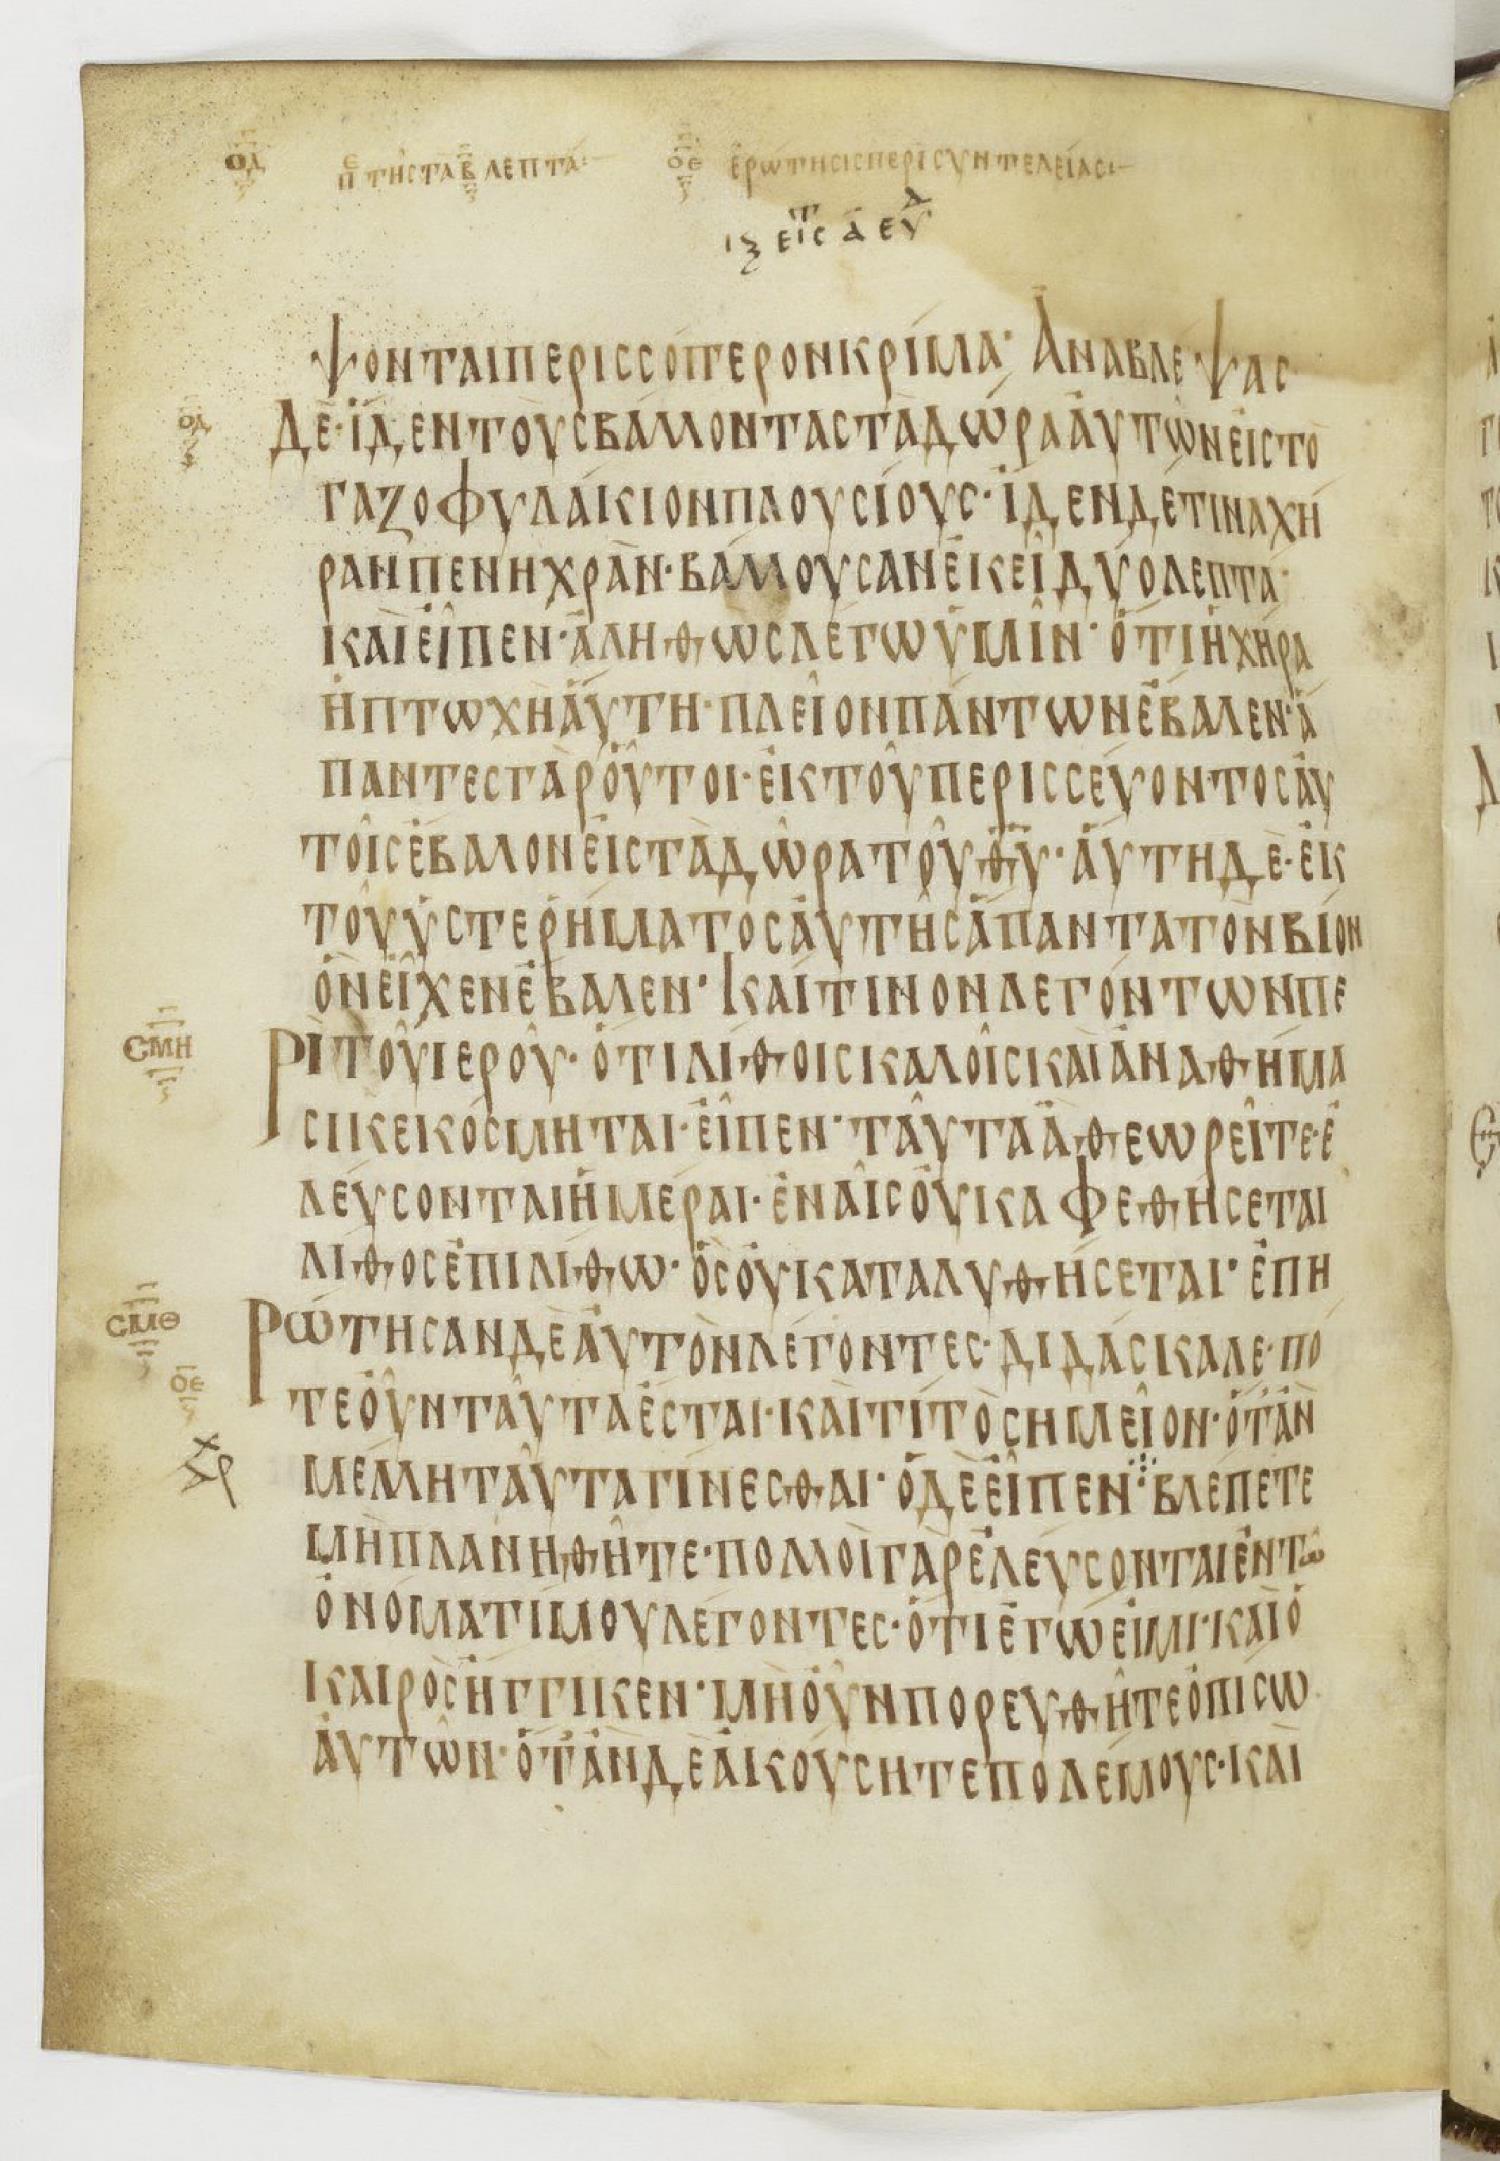 ΟΔ ΠΕ ΤΗΣ ΤΑ Β ΛΕΠΤΑ ΟΕ ΕΡΩΤΗΣΙΣ ΠΕΡΙ ΣΥΝΤΕΛΕΙΑΣ
ΨΟΝΤΑΙ ΠΕΡΙΣΣΟΤΕΡΟΝ ΚΡΙΜΑ· ΑΝΑΒΛΕΨΑΣ
ΟΔ ΔΕ· ΙΔΕΝ ΤΟΥΣ ΒΑΛΛΟΝΤΑΣ ΤΑ ΔΩΡΑ ΑΥΤΩΝ ΕΙΣ ΤΟ
ΓΑΖΟΦΥΛΑΚΙΟΝ ΠΛΟΥΣΙΟΥΣ· ΙΔΕΝ ΔΕ ΤΙΝΑ ΧΗ
ΡΑΝ ΠΕΝΗΧΡΑΝ· ΒΑΛΛΟΥΣΑΝ ΕΚΕΙ ΔΥΟ ΛΕΠΤΑ·
ΚΑΙ ΕΙΠΕΝ· ΑΛΗΘΩΣ ΛΕΓΩ ΥΜΙΝ· ΟΤΙ Η ΧΗΡΑ
Η ΠΤΩΧΗ ΑΥΤΗ· ΠΛΕΙΟΝ ΠΑΝΤΩΝ ΕΒΑΛΕΝ· Α
ΠΑΝΤΕΣ ΓΑΡ ΟΥΤΟΙ· ΕΚ ΤΟΥ ΠΕΡΙΣΣΕΥΟΝΤΟΣ ΑΥ
ΤΟΙΣ ΕΒΑΛΟΝ ΕΙΣ ΤΑ ΔΩΡΑ ΤΟΥ ΘΥ· ΑΥΤΗ ΔΕ· ΕΚ
ΤΟΥ ΥΣΤΕΡΗΜΑΤΟΣ ΑΥΤΗΣ ΑΠΑΝΤΑ ΤΟΝ ΒΙΟΝ
ΟΝ ΕΙΧΕΝ ΕΒΑΛΕΝ· ΚΑΙ ΤΙΝΟΝ ΛΕΓΟΝΤΩΝ ΠΕ
ΣΜΗ ΡΙ ΤΟΥ ΙΕΡΟΥ· ΟΤΙ ΛΙΘΟΙΣ ΚΑΛΟΙΣ ΚΑΙ ΑΝΑΘΗΜΑ
ΣΙ ΚΕΚΟΣΜΗΤΑΙ· ΕΙΠΕΝ· ΤΑΥΤΑ Α ΘΕΩΡΕΙΤΕ· Ε
ΛΕΥΣΟΝΤΑΙ ΗΜΕΡΑΙ· ΕΝ ΑΙΣ ΟΥΚ ΑΦΕΘΗΣΕΤΑΙ
ΛΙΘΟΣ ΕΠΙ ΛΙΘΩ· ΟΣ ΟΥ ΚΑΤΑΛΥΘΗΣΕΤΑΙ· ΕΠΗ
ΣΜΘ ΡΩΤΗΣΑΝ ΔΕ ΑΥΤΟΝ ΛΕΓΟΝΤΕΣ· ΔΙΔΑΣΚΑΛΕ· ΠΟ
ΟΕ ΤΕ ΟΥΝ ΤΑΥΤΑ ΕΣΤΑΙ· ΚΑΙ ΤΙ ΤΟ ΣΗΜΕΙΟΝ· ΟΤΑΝ
ΜΕΛΛΗ ΤΑΥΤΑ ΓΙΝΕΣΘΑΙ· Ο ΔΕ ΕΙΠΕΝ· ΒΛΕΠΕΤΕ
ΜΗ ΠΛΑΝΗΘΗΤΕ· ΠΟΛΛΟΙ ΓΑΡ ΕΛΕΥΣΟΝΤΑΙ ΕΝ ΤΩ
ΟΝΟΜΑΤΙ ΜΟΥ ΛΕΓΟΝΤΕΣ· ΟΤΙ ΕΓΩ ΕΙΜΙ· ΚΑΙ Ο
ΚΑΙΡΟΣ ΗΓΓΙΚΕΝ· ΜΗ ΟΥΝ ΠΟΡΕΥΘΗΤΕ ΟΠΙΣΩ
ΑΥΤΩΝ· ΟΤΑΝ ΔΕ ΑΚΟΥΣΗΤΕ ΠΟΛΕΜΟΥΣ· ΚΑΙ